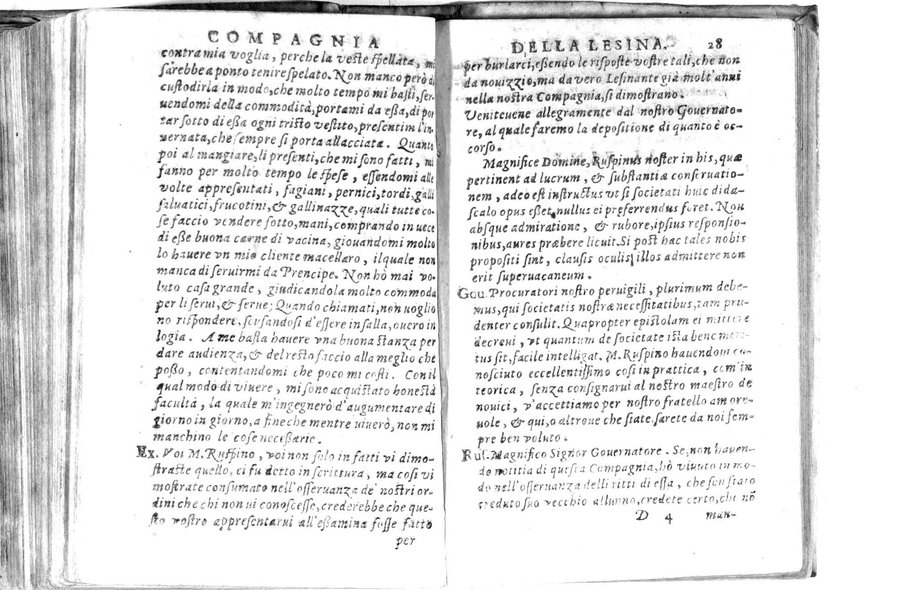 COMPAGNIA
contra mia voglia, perche la veste spellata, mi
sarebbe a ponto tenire spelato. Non manco però di
custodirla in modo, che molto tempo mi basti, ser
uendomi della commodità, portami da essa, di por
tar sotto di essa ogni tristo vestito, presentim l'in
uernata, che sempre si porta allacciata. Quanto
poi al mangiare, li presenti, che mi sono fatti, mi
fanno per molto tempo le spese, essendomi alle
volte appresentati, fagiani, pernici, tordi, galli
saluatici, frucotini, & gallinazze, quali tutte co-
se faccio vendere sotto, mani, comprando in vece
di esse buona carne di vacina, giouandomi molto
lo hauere vn mio cliente macellaro, ilquale non
manca di seruirmi da Prencipe. Non hò mai vo-
luto casa grande, giudicandola molto commoda
per li serui, & serue; Quando chiamati, non voglio
no rispondere, scusandosi d'essere in salla, ouero in
logia. A me basta hauere vna buona stanza per
dare audienza, & del resto faccio alla meglio che
posso, contentandomi che poco mi costi. Con il
qual modo di viuere, mi sono acquistato honesta
facultà, la quale m'ingegnerò d'augumentare di
giorno in giorno, a fine che mentre viuerò, non mi
manchino le cose necessarie.
Ex. Voi M. Ruspino, voi non solo in fatti vi dimo-
straste quello, ci fu detto in scrittura, ma cosi vi
mostrate consumato nell'osseruanza de' nostri or-
dini che chi non ui conoscesse, crederebbe che que-
sto vostro appresentarui all'essamina fosse fatto
per
DELLA LESINA. 28
per burlarci, essendo le risposte vostre tali, che non
da nouizzio, ma da vero Lesinante già molt'anni
nella nostra Compagnia, si dimostrano.
Veniteuene allegramente dal nostro Gouernato-
re, al quale faremo la depositione di quanto è oc-
corso.
Magnifice Domine, Ruspinus noster in his, quæ
pertinent ad lucrum, & substantiæ conseruatio-
nem, adeo est instructus vt si societati huic dida-
scalo opus esset, nullus ei preferrendus foret. Non
absque admiratione, & rubore, ipsius responsio-
nibus, aures præbere licuit. Si post hac tales nobis
propositi sint, clausis oculis, illos admittere non
erit superuacaneum.
Gou. Procuratori nostro peruigili, plurimum debe-
mus, qui societatis nostræ necessitatibus, tam pru-
denter consulit. Quapropter epistolam ei mittere
decreui, vt quantum de societate ista bene meri-
tus sit, facile intelligat. M. Ruspino hauendoui co-
nosciuto eccellentissimo cosi in prattica, com'in
teorica, senza consignarui al nostro maestro de
nouici, v'accettiamo per nostro fratello amore-
uole, & qui, o altroue che siate, sarete da noi sem-
pre ben voluto.
Rus. Magnifico Signor Gouernatore. Se, non hauen-
do notitia di questa Compagnia, hò viuuto in mo-
do nell'osseruanza delli ritti di essa, che son stato
creduto suo vecchio allunno, credete certo, chi nõ
D 4 man-